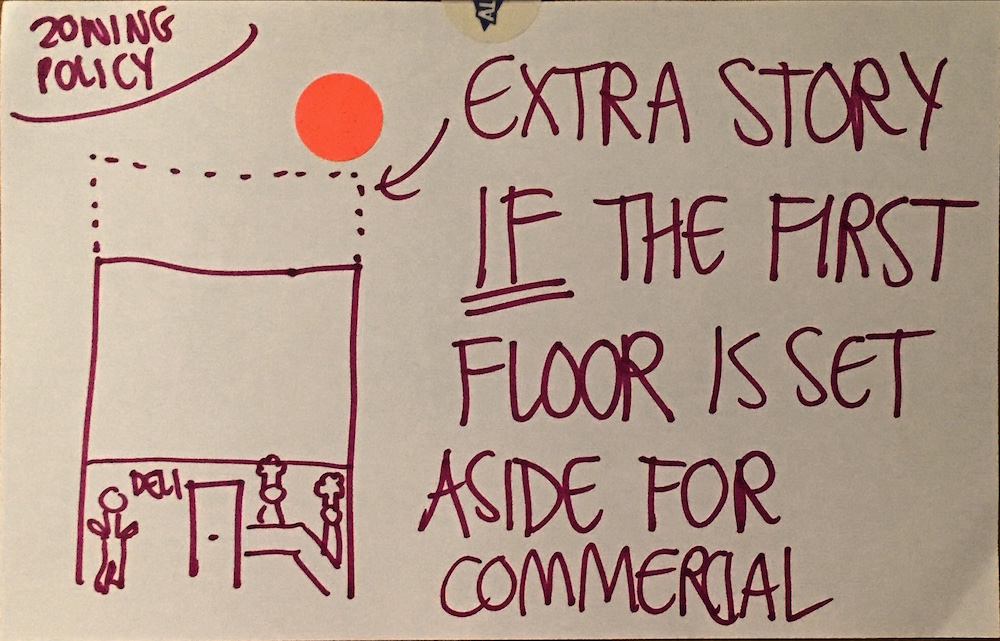 ZONING
POLICY
AL
EXTRA STORY
IF THE FIRST
FLOOR IS SET
ASIDE FOR
COMMERCIAL
DELI